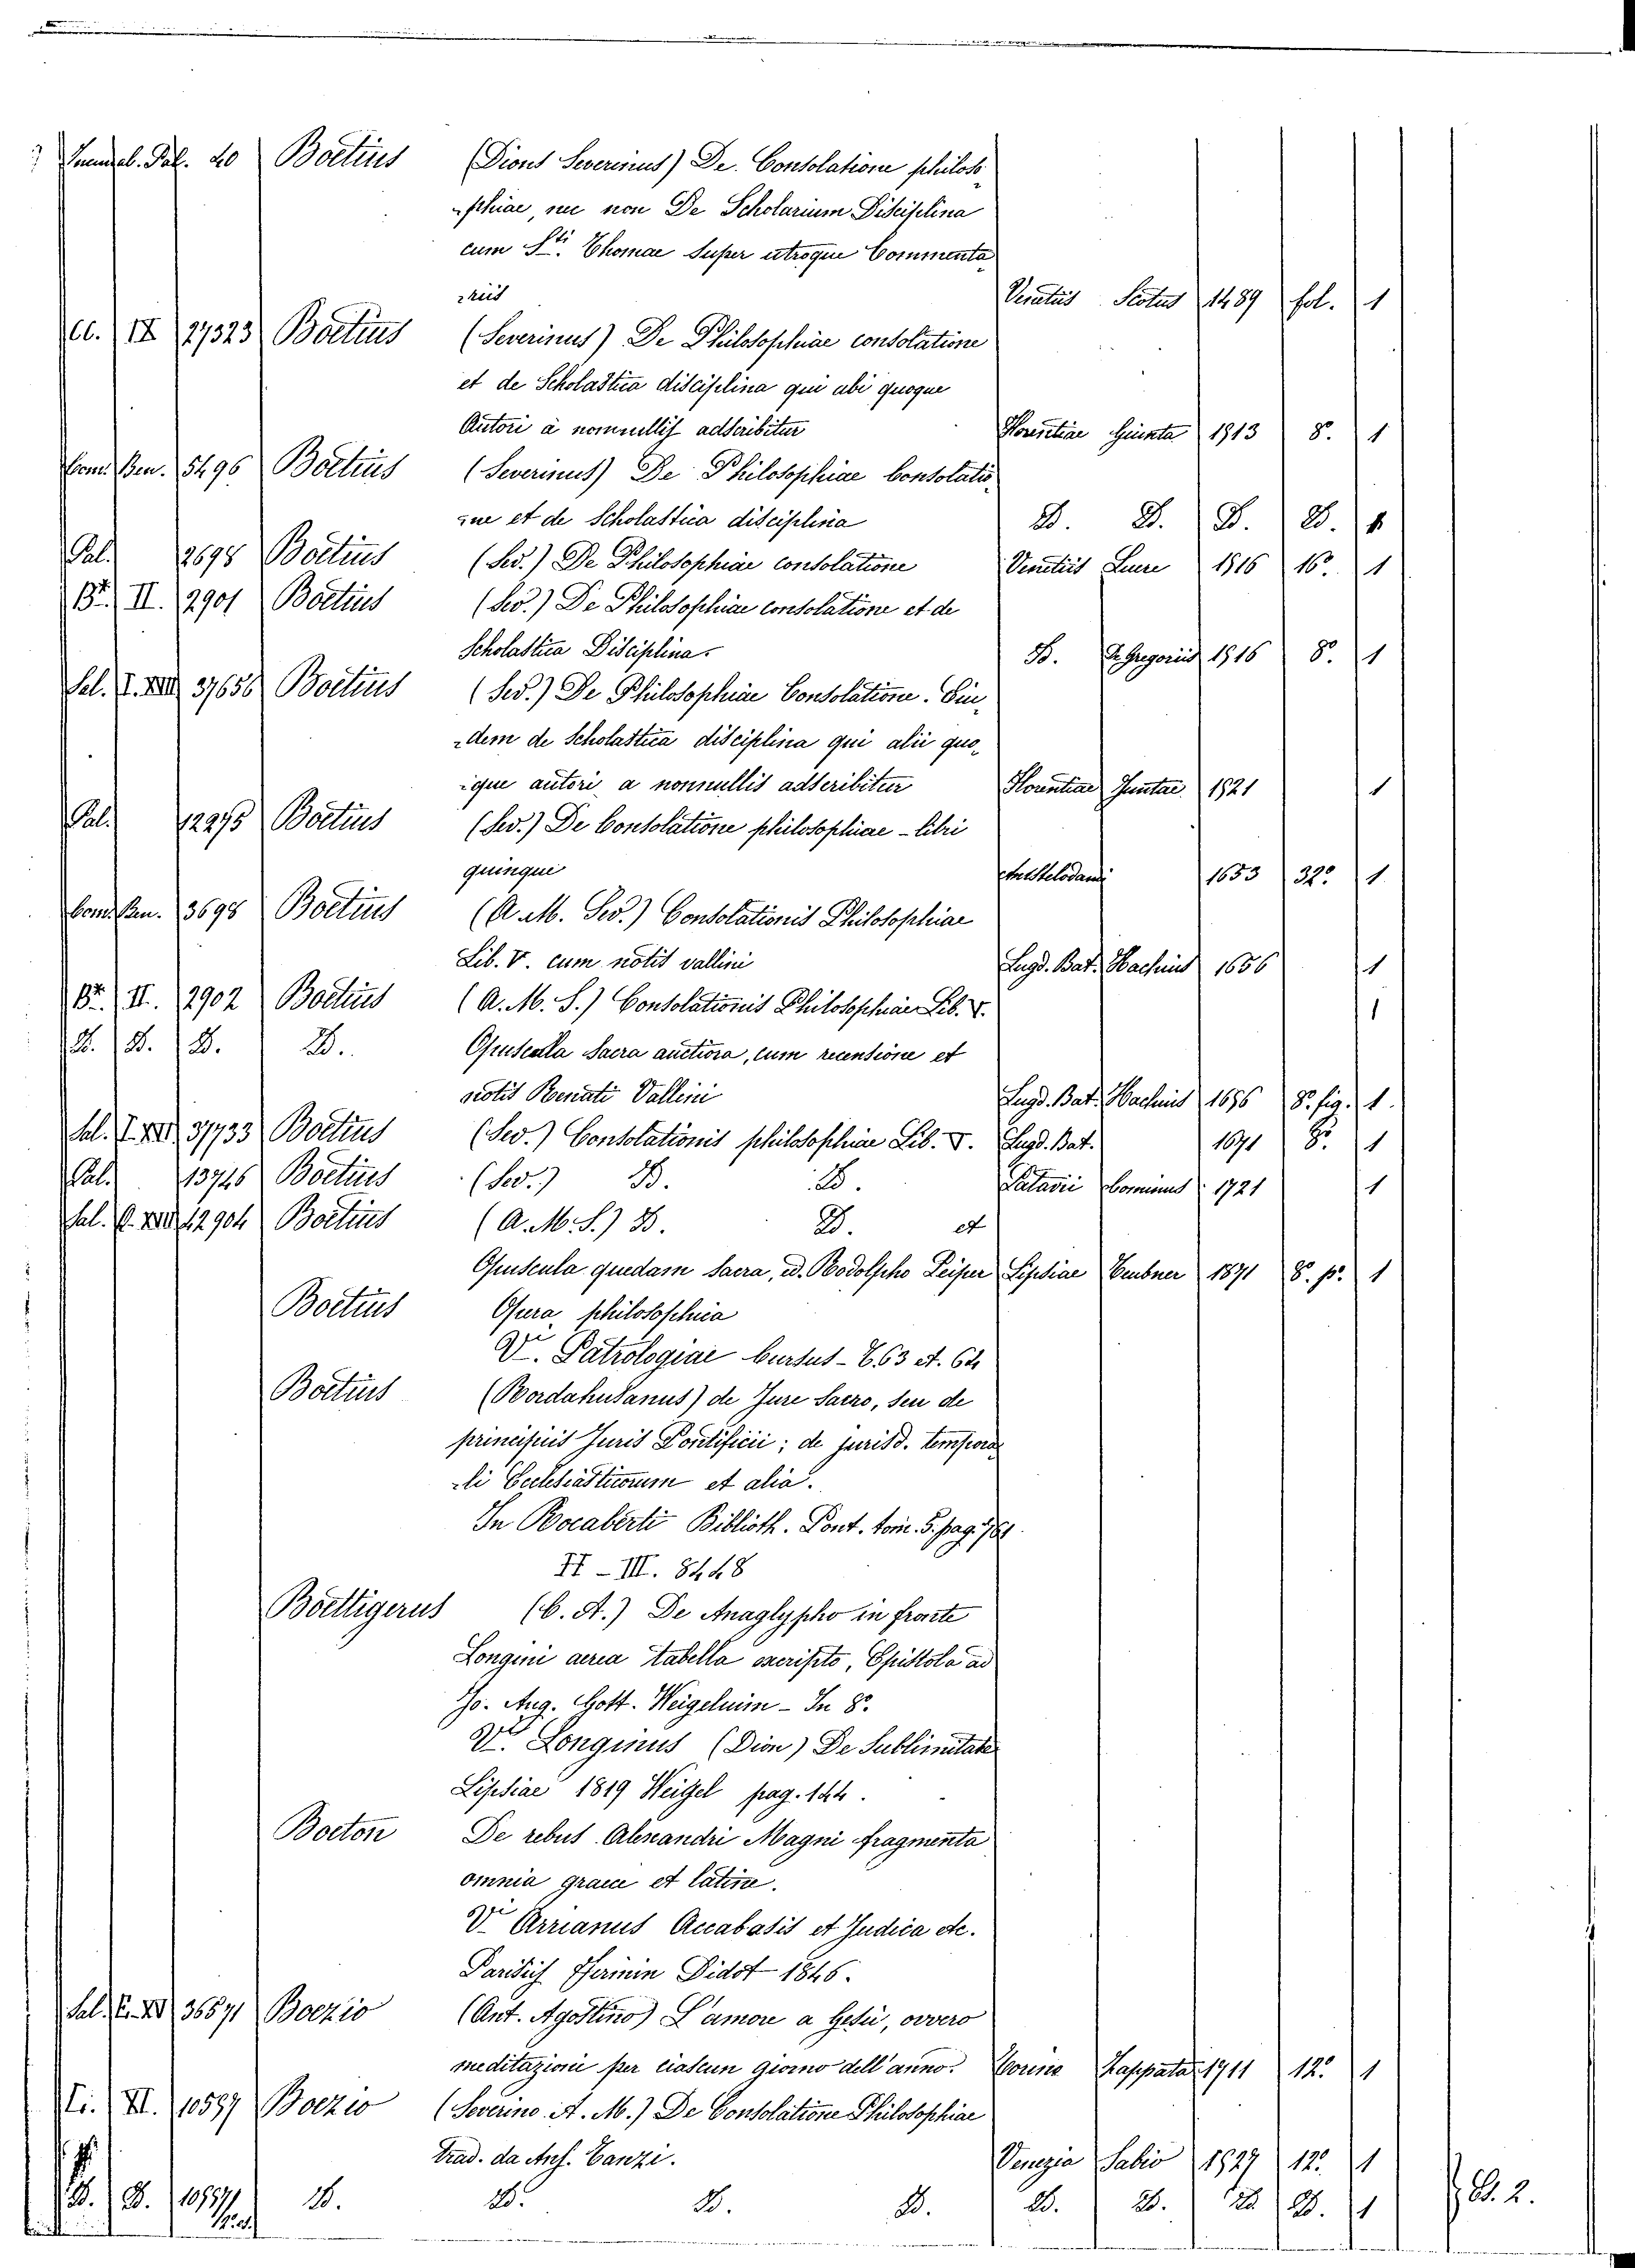 Pal. 20 Boetius (Dions Severinus) De Consolatione philoso
phiae, nec non De Scholarium Disciplina
cum Sti. Thomae super utroque Commenta
riis Venetiis Scotus 1489 fol. 1
cc. II 27323 Boetius (Severinus) De Philosophiae consolatione
et de Scholastica disciplina qui ubi quoque
Autori à nonnullis adscribitur Florentiae Giunta 1513 8. 1
Com. Ben. 5496 Boetius (Severinus) De Philosophiae Consolatio
ne et de Scholastica disciplina D. D. D. D. 1
Pal. 2698 Boetius (Sev.) De Philosophiae consolatione Venetiis Luere 1516 16º. 1
Br. II. 2901 Boetius (Sev.) De Philosophiae consolatione et de
Scholastica Disciplina. D. De Gregoriis 1516 8º. 1
Sal. I. XIII 37656 Boetius (Sev.) De Philosophiae Consolatione. Eius
dem de Scholastica disciplina qui alii quo
que autori a nonnullis adscribitur Florentiae Juntae 1521 1
Pal. 12275 Boetius (Sev.) De Consolatione philosophiae - libri
quinque Amstelodami 1653 32º 1
Com. Ben. 3698 Boetius (A. M. Sev.) Consolationis Philosophiae
Lib. V. cum notis vallini Lugd. Bat. Hachius 1656 1
Br. II. 2902 Boetius (A. M. S.) Consolationis Philosophiae Lib. V. 1
D. D. D. D. Opuscula Sacra auctiora, cum recensione et
notis Renati Vallini Lugd. Bat. Hachius 1656 8º. fig. 1.
Sal. I. XIII 37733 Boetius (Sev.) Consolationis philosophiae Lib. V. Lugd. Bat. 1671 8º. 1
Pal. 13746 Boetius (Sev.) D. D. Patavii Cominus 1721 1
Sal. 42904 Boetius (A. M. S.) D. D. et
Opuscula quedam Sacra, ed. Rodolpho Peiper Lipsiae Teubner 1871 8. pº. 1
Boetius Opera philosophica
Vi. Patrologiae Cursus - T. 63 et. 64
Boetius (Bordahusanus) de Jure Sacro, seu de
principiis Juris Pontificii; de jurisd. tempora
li Ecclesiasticorum et alia.
In Rocaberti Biblioth. Pont. tom. 5. pag. 781
II - III. 8448
Boettigerus (C. A.) De Anaglypho in fronte
Longini aerea tabella exeripto, Epistola ad
Jo. Aug. Gott. Weigelium - In 8º.
Vi. Longinus (Dion) De Sublimitate
Lipsiae 1819 Weigel pag. 144.
Boeton De rebus Alexandri Magni fragmenta
omnia graece et latine.
Vi Arrianus Accabasis et Indica etc.
Parisiis Firmin Didot 1846.
Sal. 36871 Boezio (Ant. Agostino) L'amore a Gesù, ovvero
meditazioni per ciascun giorno dell'anno. Torino Zappata 1711 12º. 1
II. 10597 Boezio (Severino A. M.) De Consolatione Philosophiae
trad. da Ans. Tanzi. Venezia Sabio 1527 12º. 1
D. D. 10597 D. D. D. D. D. D. D. D. 1 2.